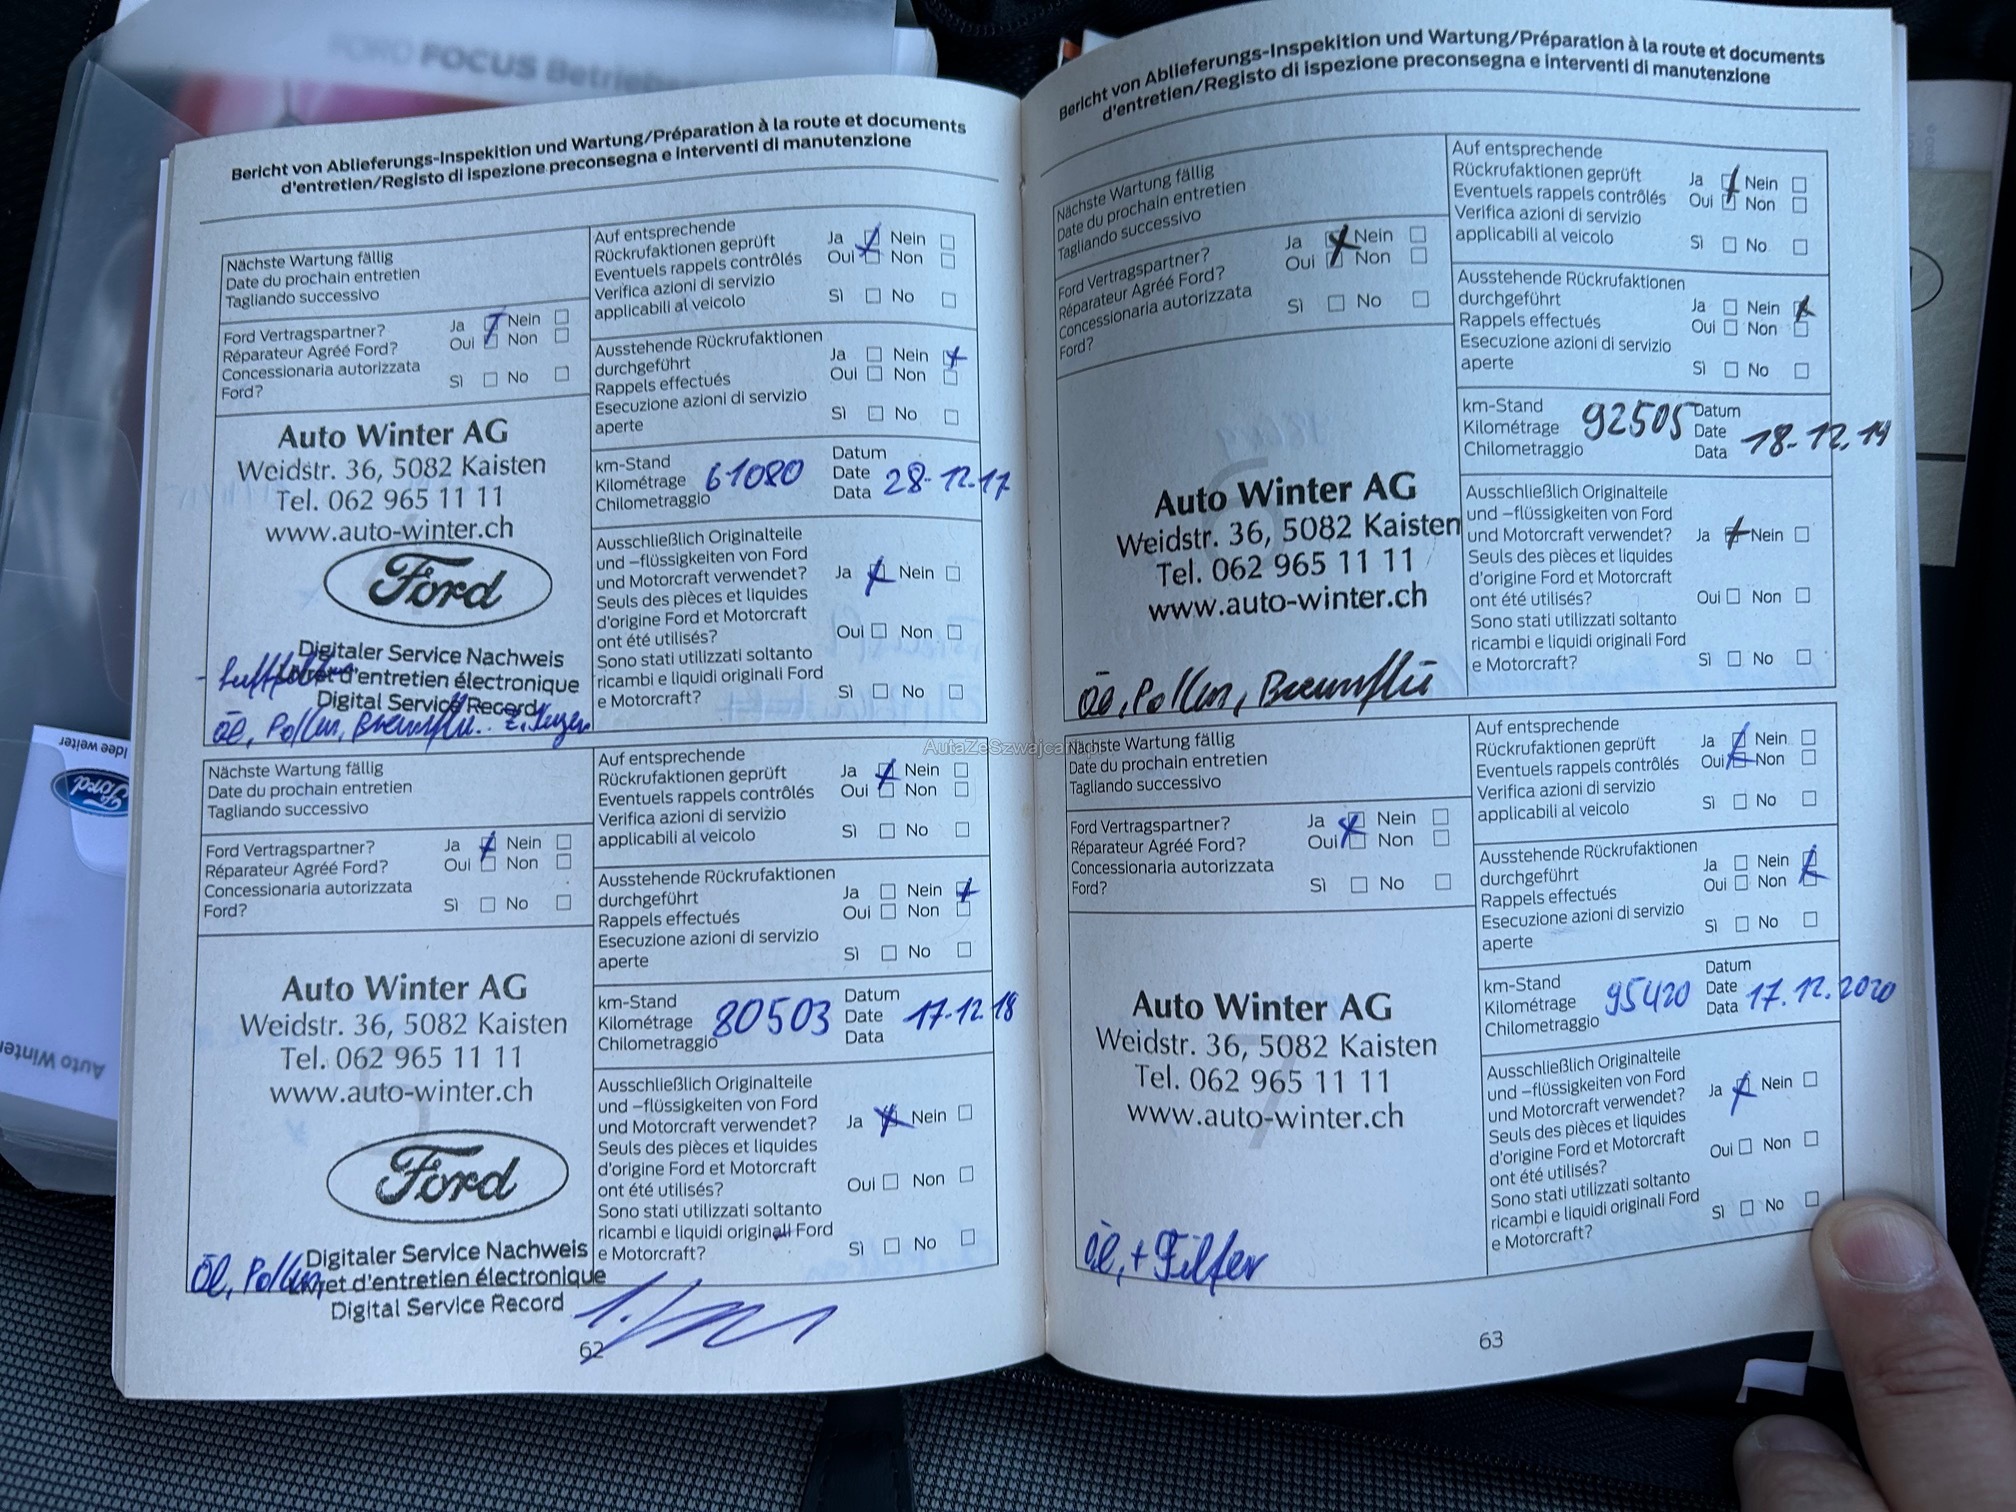 FORD FOCUS
Bericht von Ablieferungs-Inspekition und Wartung/Préparation à la route et documents
d'entretien/Registo di ispezione preconsegna e interventi di manutenzione
Nächste Wartung fällig
Date du prochain entretien
Tagliando successivo
Ford Vertragspartner?
Réparateur Agréé Ford?
Concessionaria autorizzata
Ford?
Ja Nein
Oui Non
Sì No
Auto Winter AG
Weidstr. 36, 5082 Kaisten
Tel. 062 965 11 11
www.auto-winter.ch
Ford
Digitaler Service Nachweis
Livret d'entretien électronique
Digital Service Record
- Luftfilter
Öl, Pollen, Bremsflü. Z. Kerzen
Auf entsprechende
Rückrufaktionen geprüft
Eventuels rappels contrôlés
Verifica azioni di servizio
applicabili al veicolo
Ja Nein
Oui Non
Sì No
Ausstehende Rückrufaktionen
durchgeführt
Rappels effectués
Esecuzione azioni di servizio
aperte
Ja Nein
Oui Non
Sì No
km-Stand
Kilométrage
Chilometraggio
61080
Datum
Date
Data
28.12.17
Ausschließlich Originalteile
und –flüssigkeiten von Ford
und Motorcraft verwendet?
Seuls des pièces et liquides
d'origine Ford et Motorcraft
ont été utilisés?
Sono stati utilizzati soltanto
ricambi e liquidi originali Ford
e Motorcraft?
Ja Nein
Oui Non
Sì No
Nächste Wartung fällig
Date du prochain entretien
Tagliando successivo
Ford Vertragspartner?
Réparateur Agréé Ford?
Concessionaria autorizzata
Ford?
Ja Nein
Oui Non
Sì No
Auto Winter AG
Weidstr. 36, 5082 Kaisten
Tel. 062 965 11 11
www.auto-winter.ch
Ford
Digitaler Service Nachweis
Livret d'entretien électronique
Digital Service Record
Öl, Pollen
Auf entsprechende
Rückrufaktionen geprüft
Eventuels rappels contrôlés
Verifica azioni di servizio
applicabili al veicolo
Ja Nein
Oui Non
Sì No
Ausstehende Rückrufaktionen
durchgeführt
Rappels effectués
Esecuzione azioni di servizio
aperte
Ja Nein
Oui Non
Sì No
km-Stand
Kilométrage
Chilometraggio
80503
Datum
Date
Data
17.12.18
Ausschließlich Originalteile
und –flüssigkeiten von Ford
und Motorcraft verwendet?
Seuls des pièces et liquides
d'origine Ford et Motorcraft
ont été utilisés?
Sono stati utilizzati soltanto
ricambi e liquidi originali Ford
e Motorcraft?
Ja Nein
Oui Non
Sì No
62
Bericht von Ablieferungs-Inspekition und Wartung/Préparation à la route et documents
d'entretien/Registo di ispezione preconsegna e interventi di manutenzione
Nächste Wartung fällig
Date du prochain entretien
Tagliando successivo
Ford Vertragspartner?
Réparateur Agréé Ford?
Concessionaria autorizzata
Ford?
Ja Nein
Oui Non
Sì No
Auto Winter AG
Weidstr. 36, 5082 Kaisten
Tel. 062 965 11 11
www.auto-winter.ch
Öl, Pollen, Bremsflü
Auf entsprechende
Rückrufaktionen geprüft
Eventuels rappels contrôlés
Verifica azioni di servizio
applicabili al veicolo
Ja Nein
Oui Non
Sì No
Ausstehende Rückrufaktionen
durchgeführt
Rappels effectués
Esecuzione azioni di servizio
aperte
Ja Nein
Oui Non
Sì No
km-Stand
Kilométrage
Chilometraggio
92505
Datum
Date
Data
18.12.19
Ausschließlich Originalteile
und –flüssigkeiten von Ford
und Motorcraft verwendet?
Seuls des pièces et liquides
d'origine Ford et Motorcraft
ont été utilisés?
Sono stati utilizzati soltanto
ricambi e liquidi originali Ford
e Motorcraft?
Ja Nein
Oui Non
Sì No
Nächste Wartung fällig
Date du prochain entretien
Tagliando successivo
Ford Vertragspartner?
Réparateur Agréé Ford?
Concessionaria autorizzata
Ford?
Ja Nein
Oui Non
Sì No
Auto Winter AG
Weidstr. 36, 5082 Kaisten
Tel. 062 965 11 11
www.auto-winter.ch
Öl, + Filter
Auf entsprechende
Rückrufaktionen geprüft
Eventuels rappels contrôlés
Verifica azioni di servizio
applicabili al veicolo
Ja Nein
Oui Non
Sì No
Ausstehende Rückrufaktionen
durchgeführt
Rappels effectués
Esecuzione azioni di servizio
aperte
Ja Nein
Oui Non
Sì No
km-Stand
Kilométrage
Chilometraggio
95420
Datum
Date
Data
17.12.2020
Ausschließlich Originalteile
und –flüssigkeiten von Ford
und Motorcraft verwendet?
Seuls des pièces et liquides
d'origine Ford et Motorcraft
ont été utilisés?
Sono stati utilizzati soltanto
ricambi e liquidi originali Ford
e Motorcraft?
Ja Nein
Oui Non
Sì No
63
Idee weiter
Ford
Auto Winter